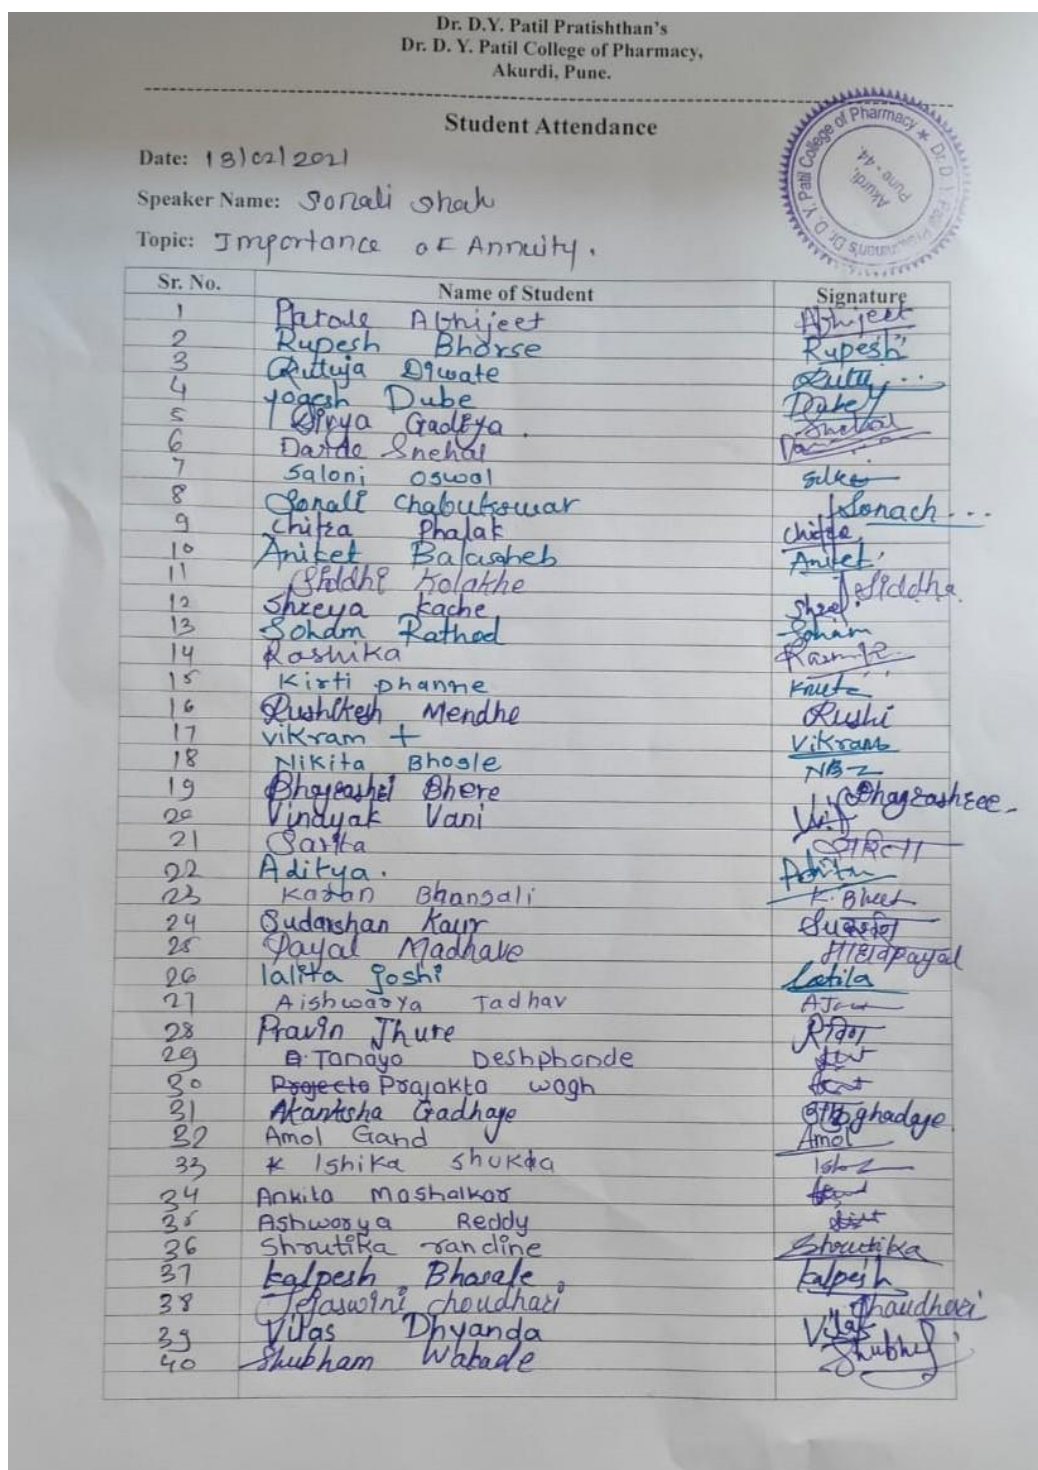 Dr. D.Y. Patil Pratishthan's
Dr. D. Y. Patil College of Pharmacy,
Akurdi, Pune.
Student Attendance
Dr. D. Y. Patil College of Pharmacy ★ Dr. D. Y. Patil Pratishthan's
Akurdi,
Pune - 44.
Date: 13/02/2021
Speaker Name: Sonali Shah
Topic: Importance of Annuity.
Sr. No. Name of Student Signature
1 Patole Abhijeet Abhijeet
2 Rupesh Bhorse Rupesh
3 Rutuja Diwate Rutu
4 yogesh Dube Dubey
5 Divya Gadiya. Snehal
6 Darde Snehal
7 Saloni Oswal
8 Sonali Chabukswar Sonach
9 Chitra Phalak
10 Aniket Balasaheb Aniket
11 Siddhi Kolakhe Siddha
12 Shreya Kache
13 Soham Rathod Soham
14 Rashika
15 Kirti Dhanne
16 Rushikesh Mendhe Rushi
17 Vikram t Vikram
18 Nikita Bhosle NB
19 Bhagrashri Bhere Bhagrashree
20 Vinayak Vani
21 Sarita सरिता
22 Aditya.
23 Karan Bhansali
24 Sudarshan Kaur
25 Payal Madhave
26 lalita Joshi Latila
27 Aishwarya Jadhav
28 Pravin Jhure
29 Tanaya Deshphande
30 Prajakta wagh
31 Akanksha Gadhage ghadage
32 Amol Gand Amol
33 Ishika Shukda
34 Ankita Mashalkar
35 Ashwarya Reddy
36 Shrutika randine Shrutika
37 Kalpesh Bhasale Kalpesh
38 Tejaswini choudhari Chaudhari
39 Vilas Dhyanda Vilas
40 Shubham Wabade Shubh